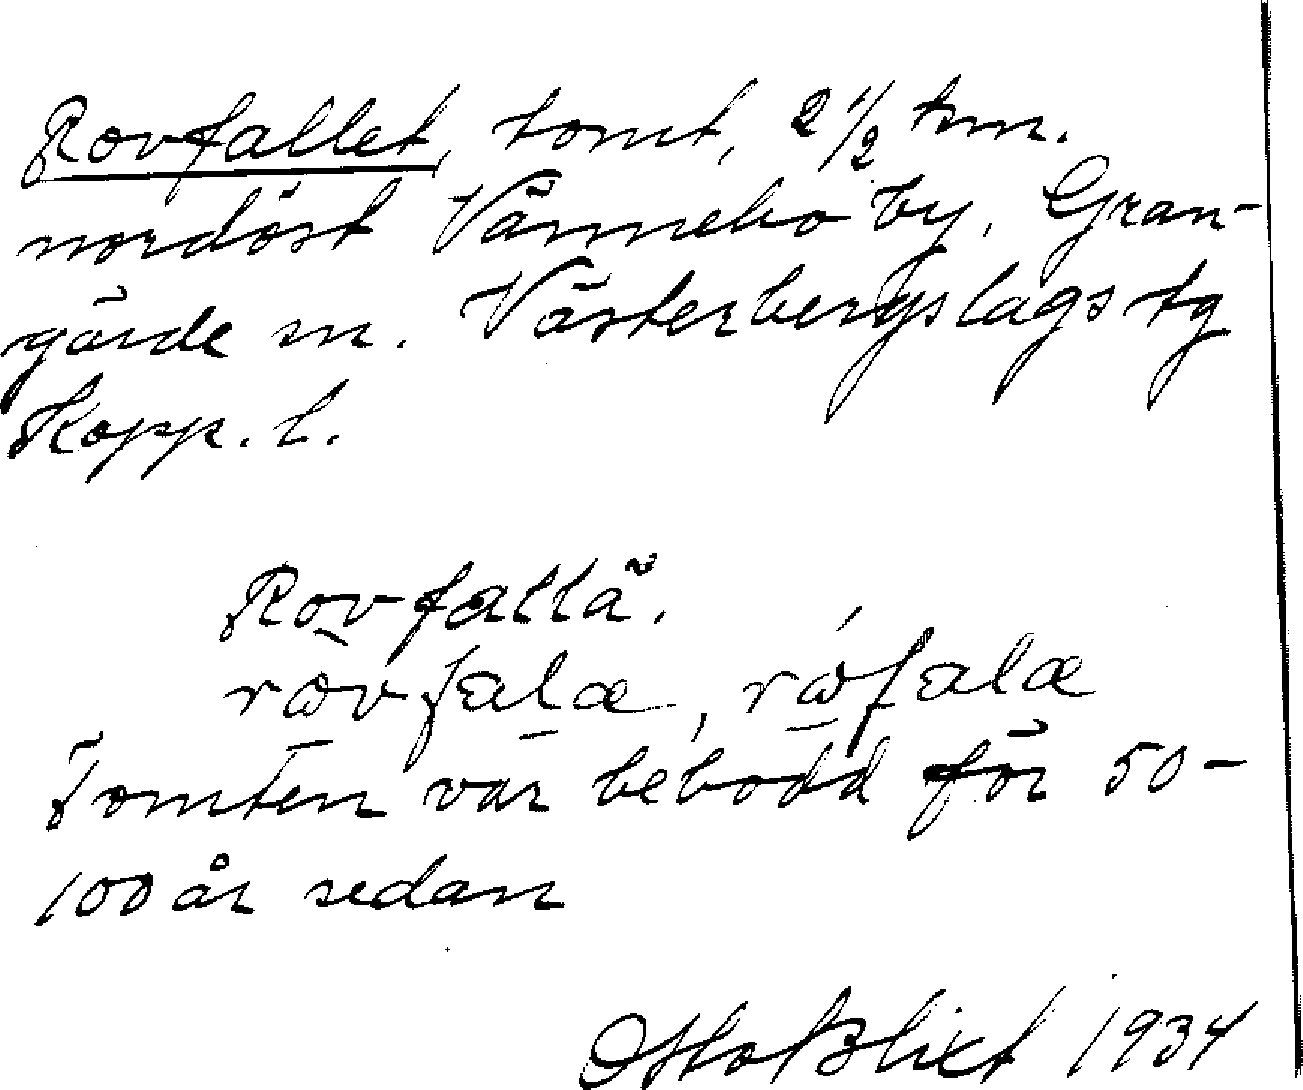 Rovfallet, tomt, 2 1/2 km.
nordöst Vännebo by, Gran-
gärde sn. Västerbergslags tg
Kopp. l.
Rovfallä.
rωvfalæ, rωfalæ
Tomten var bebodd för 50-
100 år sedan
Otto Blixt 1934